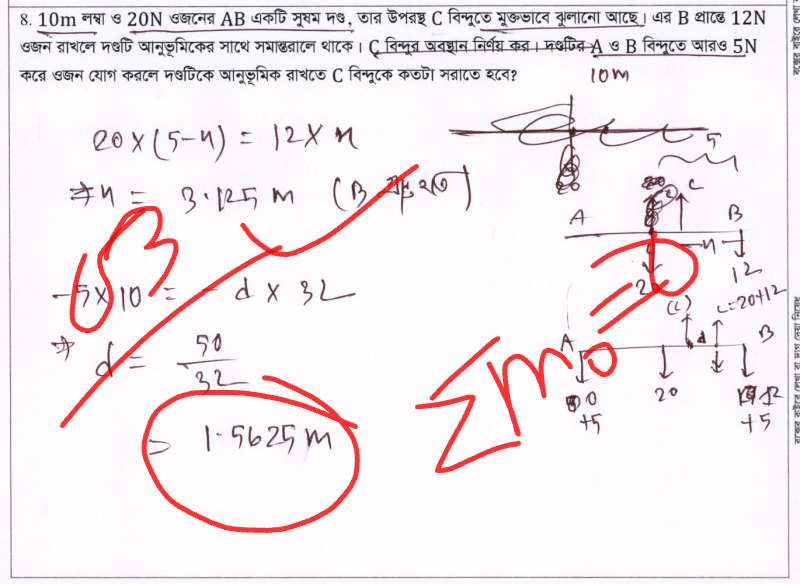 8. 10m লম্বা ও 20N ওজনের AB একটি সুষম দণ্ড, তার উপরস্থ C বিন্দুতে মুক্তভাবে ঝুলানো আছে। এর B প্রান্তে 12N
ওজন রাখলে দণ্ডটি আনুভূমিকের সাথে সমান্তরালে থাকে। C বিন্দুর অবস্থান নির্ণয় কর। দণ্ডটির A ও B বিন্দুতে আরও 5N
করে ওজন যোগ করলে দণ্ডটিকে আনুভূমিক রাখতে C বিন্দুকে কতটা সরাতে হবে?
10m
20 × (5-x) = 12 × x
5
⇒ x = 3.125 m (B হতে)
C
A
B
x
12
ΣM0=0
-5×10 = - d × 32
(C)
C=20+12
⇒ d = 50/32
A
d
B
20
12
+5
+5
= 1.5625 m